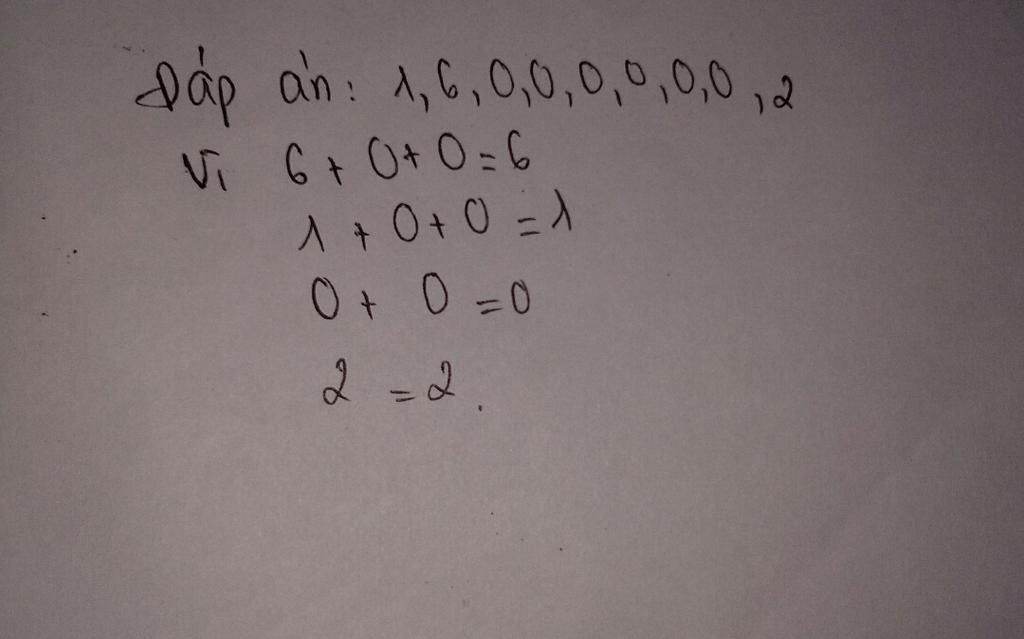 Đáp án: 1,6,0,0,0,0,0,0,2
Vì 6+0+0=6
1+0+0=1
0+0=0
2=2.